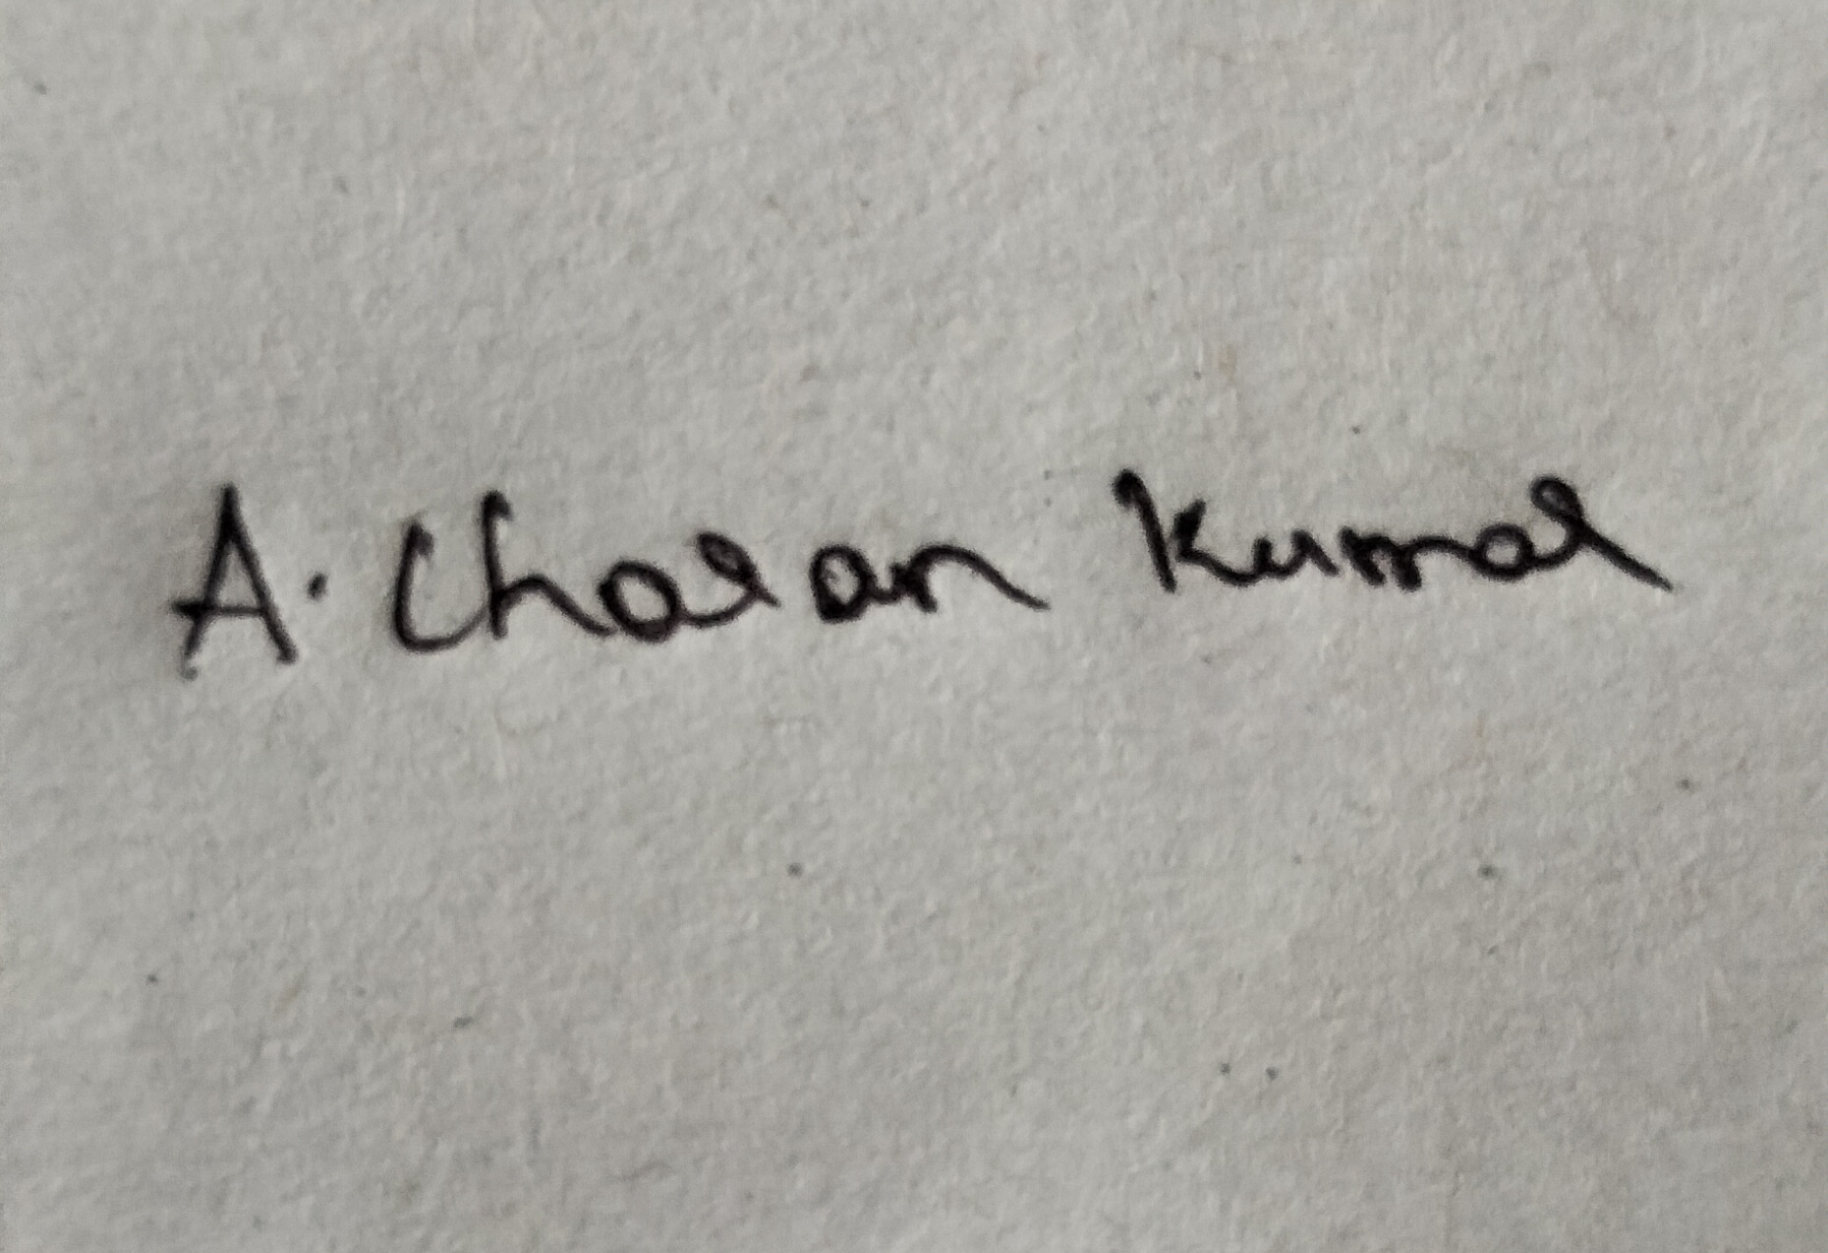 A. Charan Kumar